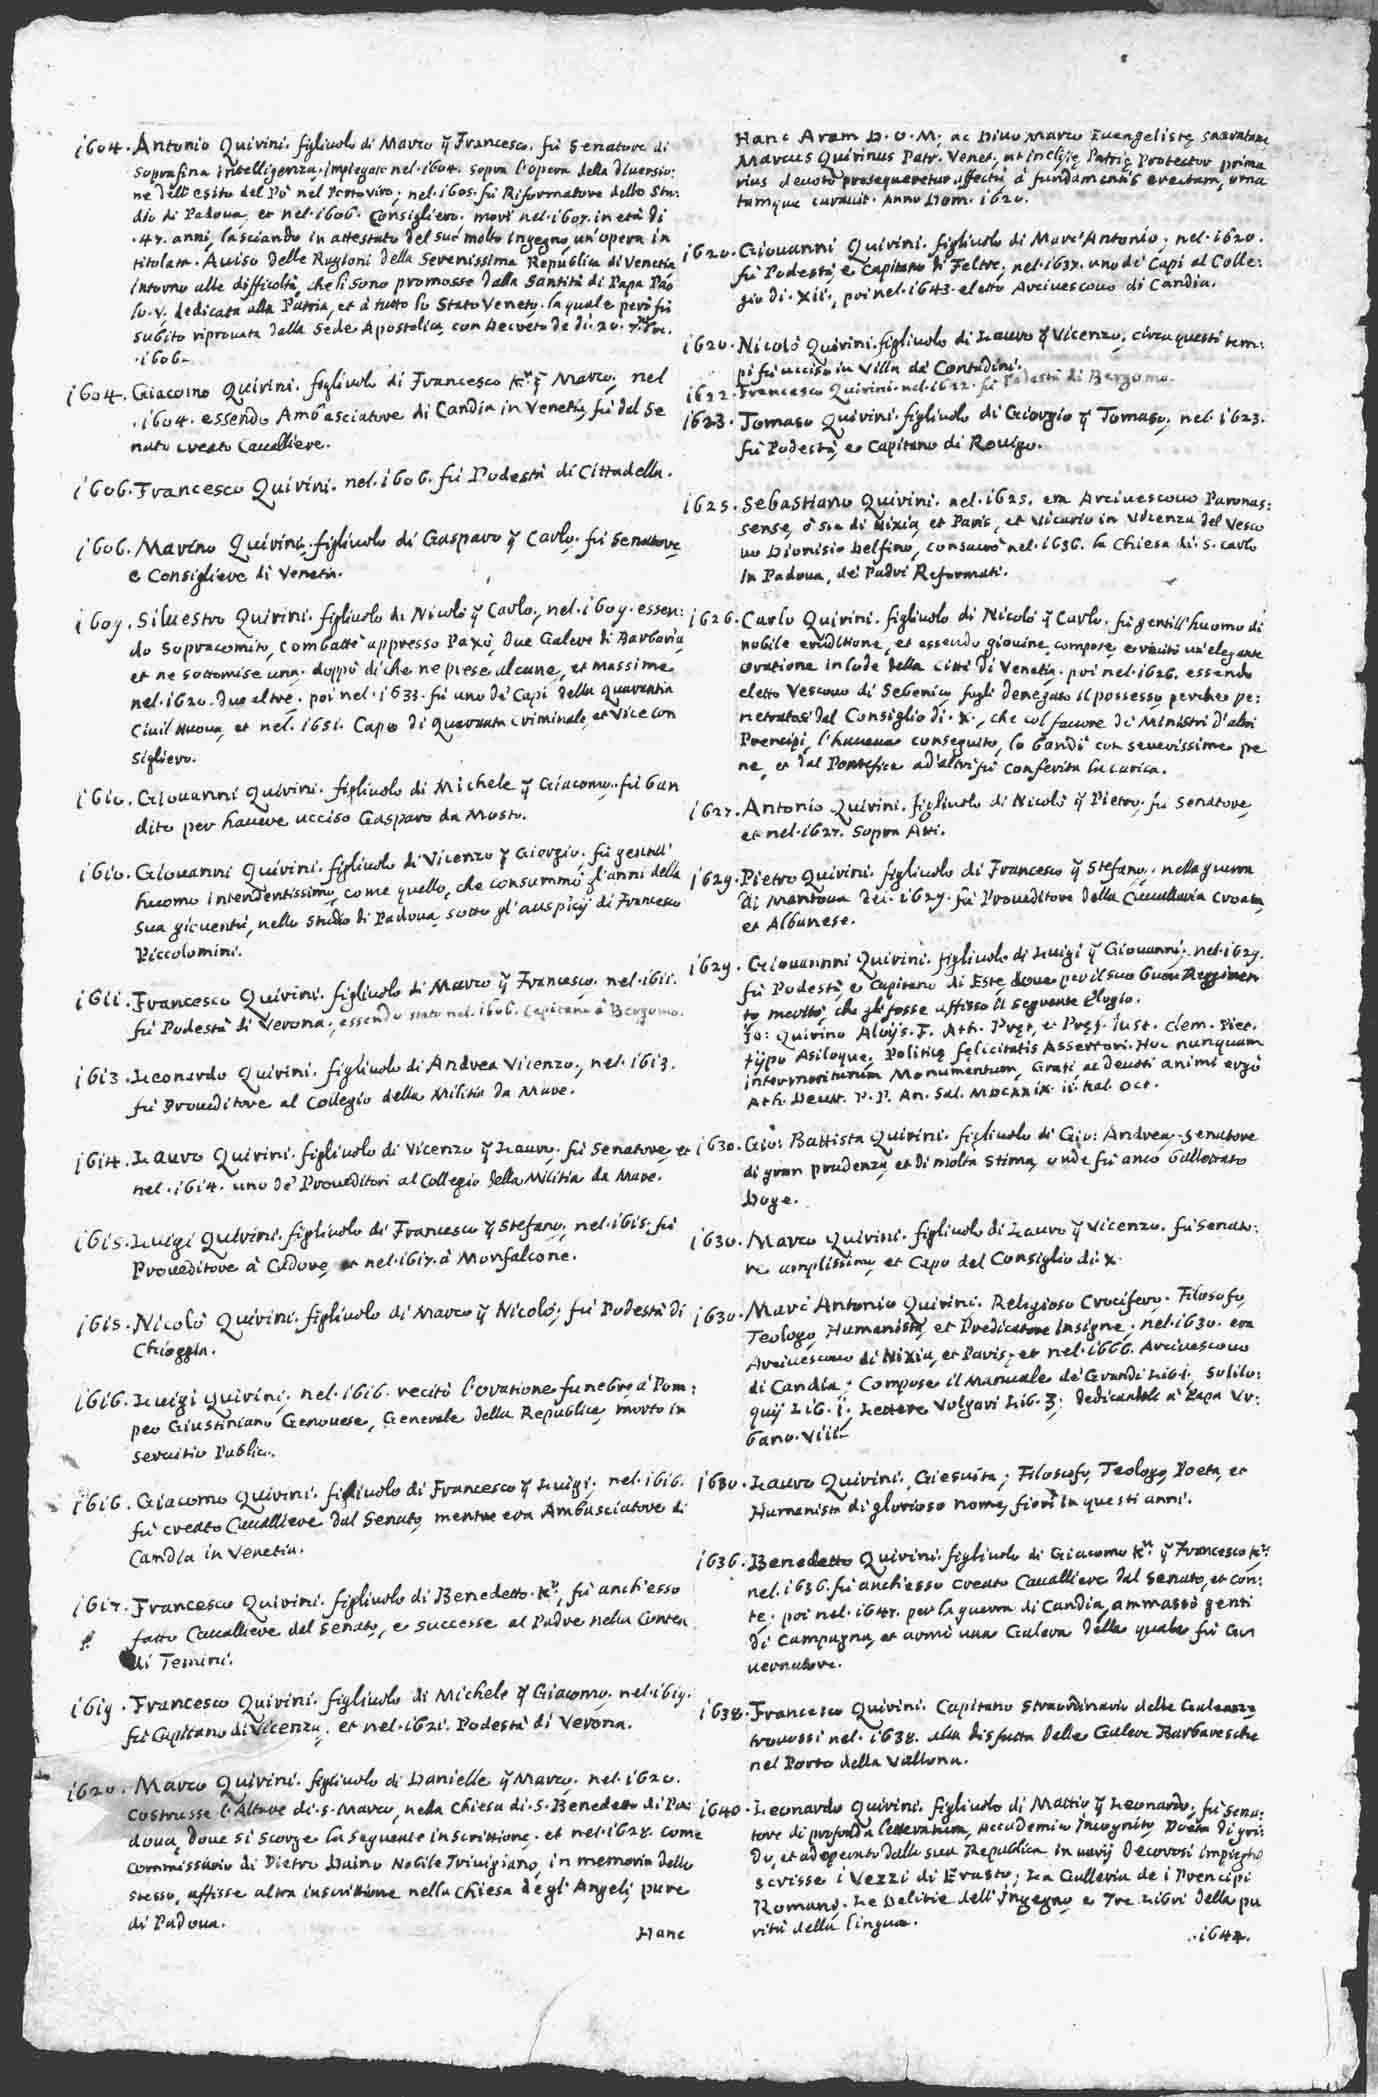 1604. Antonio Quirini. figliuolo di Marco q̃ Francesco. fù Senatore di
soprafina intelligenza, impiegato nel 1604. sopra l'opera della diversio:
ne dell'esito del Pò nel Portoviro; nel 1605. fù Riformatore dello Stu:
dio di Padova, et nel 1606. Consigliero. morì nel 1607. in età di
.47. anni, lasciando in attestato del suo molto ingegno, un'opera in
titolata. Aviso delle Ragioni della Serenissima Republica di Venetia
intorno alle difficoltà, che li sono promosse dalla Santità di Papa Pao
lo. V. dedicata alla Patria, et à tutto lo Stato Veneto. la quale però fù
subito riprovata dalla Sede Apostolica, con Decreto de dì. 20. 7.bre.
.1606.
1604. Giacomo Quirini. figliuolo di Francesco K.r q̃ Marco; nel
.1604. essendo Ambasciatore di Candia in Venetia, fù dal Se
nato creato Cavalliere.
1606. Francesco Quirini. nel 1606. fù Podestà di Cittadella.
1606. Marino Quirini. figliuolo di Gasparo q̃ Carlo. fù Senatore
e Consigliere di Venetia.
1609. Silvestro Quirini. figliuolo di Nicolò q̃ Carlo, nel 1609. essen:
do Sopracomito, combattè appresso Paxò, due Galere di Barbaria,
et ne sottomise una. doppò di che ne prese alcune, et massime
nel 1620. due altre. poi nel 1633. fù uno de' Capi della Quarantia
Civil Nuova, et nel 1651. Capo di Quaranta Criminale, et Vice Con
sigliero.
1610. Giovanni Quirini. figliuolo di Michele q̃ Giacomo. fù ban
dito per havere ucciso Gasparo da Mosto.
1610. Giovanni Quirini. figliuolo di Vicenzo q̃ Giorgio. fù gentil'
huomo intendentissimo, come quello, che consummò gl'anni della
sua gioventù, nello Studio di Padova, sotto gl'auspicij di Francesco
Piccolomini.
1611. Francesco Quirini. figliuolo di Marco q̃ Francesco. nel 1611.
fù Podestà di Verona, essendo stato nel 1606. Capitano à Bergomo.
1613. Leonardo Quirini. figliuolo di Andrea Vicenzo, nel 1613.
fù Proveditore al Collegio della Militia da Mare.
1614. Lauro Quirini. figliuolo di Vicenzo q̃ Lauro. fù Senatore, et
nel 1614. uno de' Proveditori al Collegio della Militia da Mare.
1615. Luigi Quirini. figliuolo di Francesco q̃ Stefano, nel 1615. fù
Proveditore à Cadore, et nel 1617. à Monfalcone.
1615. Nicolò Quirini. figliuolo di Marco q̃ Nicolò; fù Podestà di
Chioggia.
1616. Luigi Quirini; nel 1616. recitò l'oratione funebre à Pom:
peo Giustiniano Genovese, Generale della Republica, morto in
servitio Publico.
1616. Giacomo Quirini. figliuolo di Francesco q̃ Luigi. nel 1616.
fù creato Cavalliere dal Senato, mentre era Ambasciatore di
Candia in Venetia.
1617. Francesco Quirini. figliuolo di Benedetto K.r, fù anch'esso
fatto Cavalliere del Senato, e successe al Padre nella Contea
di Temini.
1619. Francesco Quirini. figliuolo di Michele q̃ Giacomo. nel 1619.
fù Capitano di Vicenza, et nel 1621. Podestà di Verona.
1620. Marco Quirini. figliuolo di Danielle q̃ Marco. nel 1620.
Costrusse l'Altare di S. Marco, nella Chiesa di S. Benedetto di Pa:
dova, dove si scorge la seguente inscrittione. et nel 1628. come
Commissario di Pietro Daino Nobile Trivigiano, in memoria dello
stesso, affisse altra inscrittione nella Chiesa degl'Angeli, pure
di Padova.
Hanc
Hanc Aram D. O. M; ac Divo Marco Evangelistę
Marcus Quirinus Patr. Venet. ut inclytę Patrię Protector prima
rius devoto prosequeretur affectu à fundamentis erectam, orna
tamque curavit. Anno Dom. 1620.
1620. Giovanni Quirini. figliuolo di Marc'Antonio. nel 1620.
fù Podestà, e Capitano di Feltre, nel 1637. uno de' Capi al Colle:
gio di XII., poi nel 1643. eletto Arcivescovo di Candia.
1620. Nicolò Quirini. figliuolo di Lauro q̃ Vicenzo, circa questi tem:
pi fù ucciso in Villa da' Contadini.
1622. Francesco Quirini. nel 1622. fù Podestà di Bergomo.
1623. Tomaso Quirini. figliuolo di Giorgio q̃ Tomaso, nel 1623.
fù Podestà, e Capitano di Rovigo.
1625. Sebastiano Quirini. nel 1625. era Arcivescovo Paronas:
sense, ò sia di Nixia, et Paris, et Vicario in Vicenza del Vesco
vo Dionisio Delfino, consacrò nel 1636. la Chiesa di S. Carlo
in Padova, de' Padri Reformati.
1626. Carlo Quirini. figliuolo di Nicolò q̃ Carlo. fù gentill'huomo di
nobile eruditione, et essendo giovine, compose, e recitò un'elegante
oratione in lode della Città di Venetia. poi nel 1626. essendo
eletto Vescovo di Sebenico, fugli denegato il possesso, perche pe:
netratosi dal Consiglio di X., che col favore de' Ministri d'altri
Prencipi, l'haveva conseguito, lo bandì con severissime pe
ne, et dal Pontefice ad'altri fù conferita la carica.
1627. Antonio Quirini. figliuolo di Nicolò q̃ Pietro, fù Senatore,
et nel 1627. sopra Atti.
1629. Pietro Quirini. figliuolo di Francesco q̃ Stefano. nella guerra
di Mantova del 1629. fù Proveditore della Cavallaria Croata,
et Albanese.
1629. Giovannni Quirini. figliuolo di Luigi q̃ Giovanni. nel 1629.
fù Podestà, e Capitano di Este, dove per il suo buon Reggimen
to meritò, che gli fosse affisso il seguente Elogio.
Jo: Quirino Aloijs. F. Ath. Pręt. et Pręf. Iust. Clem. Piet.
typo Asiloque, Politicę felicitatis Assertori. Hoc nunquam
intermoriturum Monumentum, Grati, ac Devoti animi ergò
Ath. P. P. An. Sal. MDCXXIX. kal. Oct.
1630. Gio: Battista Quirini. figliuolo di Gio: Andrea. Senatore
di gran prudenza, et di molta stima, onde fù anco ballottato
Doge.
1630. Marco Quirini. figliuolo di Lauro q̃ Vicenzo. fù Senato:
re amplissimo, et Capo del Consiglio di X.
1630. Marc'Antonio Quirini. Religioso Crocifero. Filosofo,
Teologo, Humanista, et Predicatore Insigne. nel 1630. era
Arcivescovo di Nixia, et Paris, et nel 1666. Arcivescovo
di Candia. Compose il Manuale de' Grandi Lib. 1. Solilo:
quij Lib. 1; Lettere Volgari Lib. 3; dedicandoli à Papa Ur:
bano. VIII.
1630. Lauro Quirini. Giesuita; Filosofo, Teologo, Poeta, et
Humanista di glorioso nome, fiorì in questi anni.
1636. Benedetto Quirini. figliuolo di Giacomo K.r q̃ Francesco K.r
nel 1636. fù anch'esso creato Cavalliere dal Senato, et con:
te. poi nel 1647. per la guerra di Candia, ammassò genti
di Campagna, et armò una Galera della quale fù Go
vernatore.
1638. Francesco Quirini. Capitano straordinario delle Galeazze
trovossi nel 1638. alla disfatta delle Galere Barbaresche
nel Porto della Vallona.
1640. Leonardo Quirini. figliuolo di Mattio q̃ Leonardo, fù Sena:
tore di profonda letteratura, Accademico Incognito, Poeta di gri:
do, et adoperato dalla sua Republica in varij decorosi impieghi
scrisse i Vezzi di Erasto; La Galleria de i Prencipi
Romani. Le Delitie dell'Ingegno, e Tre Libri della pu
rità della lingua.
.1644.